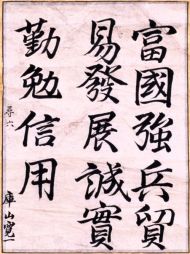 富國強兵貿
易發展誠實
勤勉信用
尋六
庫山寛一